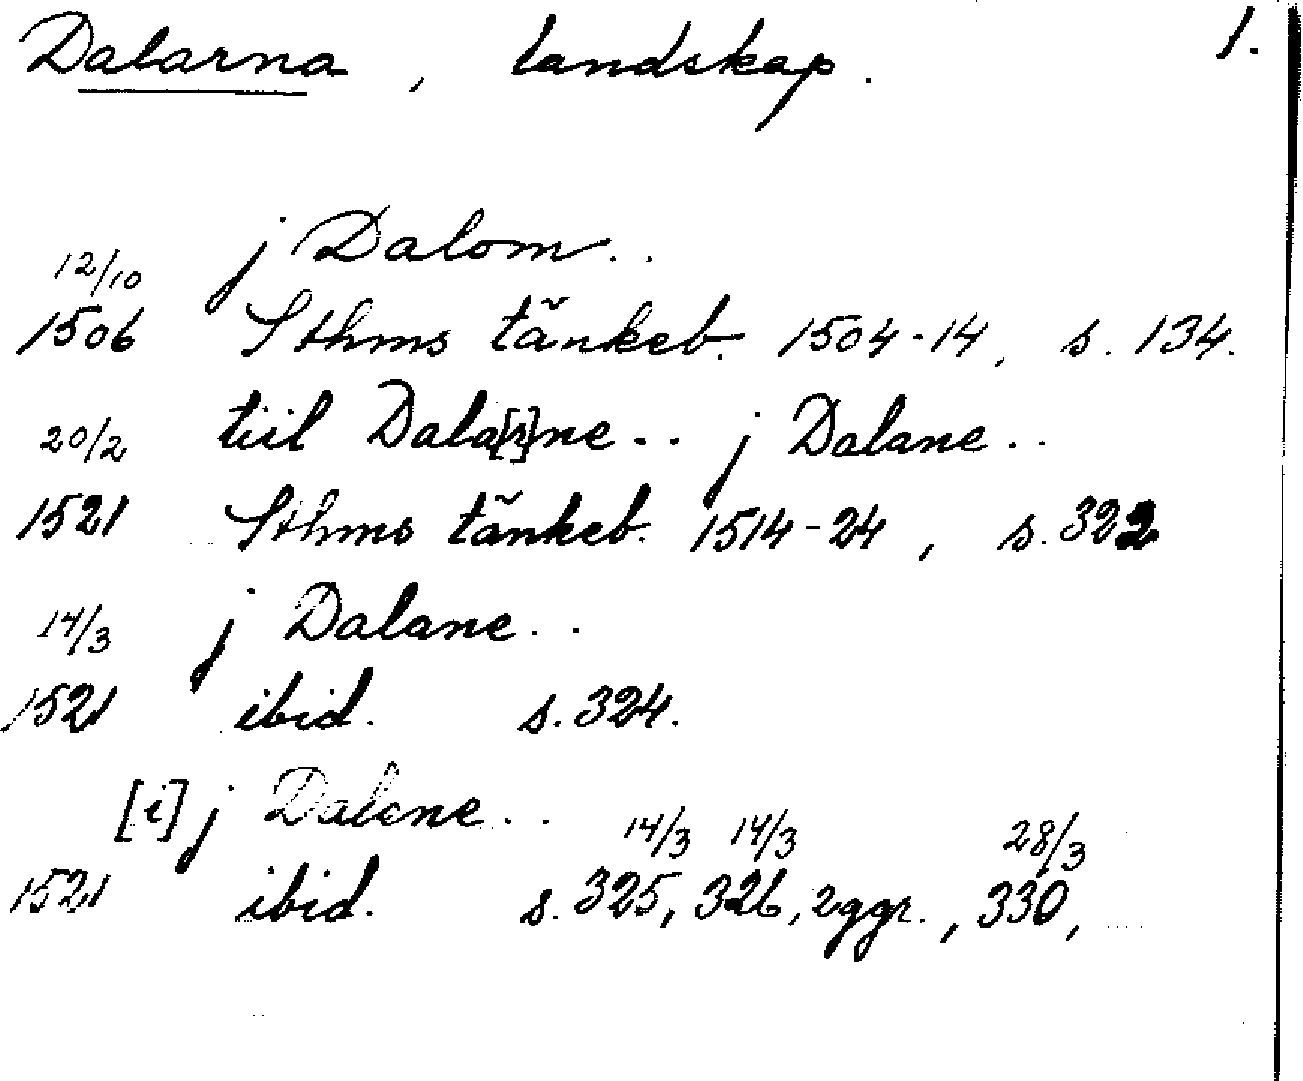 Dalarna, landskap. 1.
j Dalom..
12/10
1506 Sthms tänkeb. 1504-14, s. 134.
20/2 tiil Dala[r]ne.. j Dalane..
1521 Sthms tänkeb. 1514-24, s. 322
14/3 j Dalane..
1521 ibid. s. 324.
[i] j Dalene..
14/3 14/3 28/3
1521 ibid. s. 325, 326, 2ggr., 330,